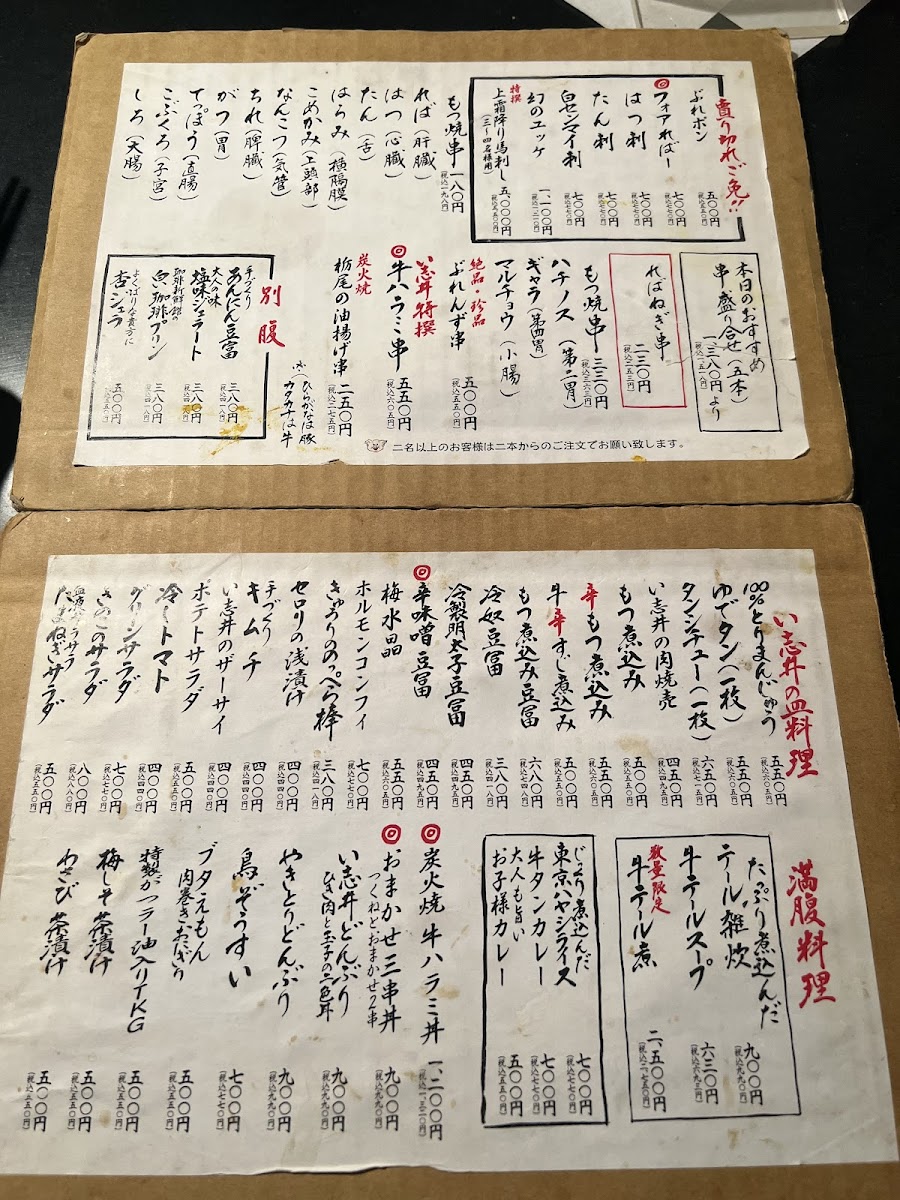 売り切れご免!!
ぶれポン 五〇〇円 (税込五五〇円)
フォアればー 七〇〇円 (税込七七〇円)
はつ刺 七〇〇円 (税込七七〇円)
たん刺 七〇〇円 (税込七七〇円)
白センマイ刺 七〇〇円 (税込七七〇円)
幻のユッケ 一、一〇〇円 (税込一、二一〇円)
特撰
上霜降り馬刺し 五、〇〇〇円 (税込五、五〇〇円)
(三〜四名様用)
もつ焼串 一八〇円 (税込一九八円)
れば (肝臓)
はつ (心臓)
たん (舌)
はらみ (横隔膜)
こめかみ (上頭部)
なんこつ (気管)
ちれ (脾臓)
がつ (胃)
てっぽう (直腸)
こぶくろ (子宮)
しろ (大腸)
本日のおすすめ
串盛り合せ (五本)
一、三八〇円より (税込一、五一八円)
ればねぎ串 二三〇円 (税込二五三円)
もつ焼串 三三〇円 (税込三六三円)
ハチノス (第二胃)
ギャラ (第四胃)
マルチョウ (小腸)
絶品・珍品
ぶれんず串 五〇〇円 (税込五五〇円)
い志井特撰
牛ハラミ串 五五〇円 (税込六〇五円)
炭火焼
栃尾の油揚げ串 二五〇円 (税込二七五円)
ひらがなは豚
カタカナは牛
別腹
手づくり
あんにん豆富 三八〇円 (税込四一八円)
大人の味
塩味ジェラート 三八〇円 (税込四一八円)
珈琲新鮮館の
白い珈琲プリン 三八〇円 (税込四一八円)
よくばりな貴方に
杏ジェラ 五〇〇円 (税込五五〇円)
二名以上のお客様は二本からのご注文でお願い致します。
い志井の皿料理
100%とりまんじゅう 五五〇円
ゆでタン (一枚) 五五〇円
タンシチュー (一枚) 六五〇円 (税込七一五円)
い志井の肉焼売 四五〇円 (税込四九五円)
もつ煮込み 五〇〇円 (税込五五〇円)
辛もつ煮込み 五五〇円 (税込六〇五円)
牛辛すじ煮込み 五〇〇円 (税込五五〇円)
もつ煮込み豆富 六八〇円 (税込七四八円)
冷奴豆富 三八〇円 (税込四一八円)
冷製明太子豆富 四五〇円 (税込四九五円)
辛味噌豆富 四五〇円 (税込四九五円)
梅水晶 五五〇円 (税込六〇五円)
ホルモンコンフィ 七〇〇円 (税込七七〇円)
きゅうりののっぺら棒 三八〇円 (税込四一八円)
セロリの浅漬け 四〇〇円 (税込四四〇円)
手づくり
キムチ 四〇〇円 (税込四四〇円)
い志井のザーサイ 四〇〇円 (税込四四〇円)
ポテトサラダ 五〇〇円 (税込五五〇円)
冷しトマト 四〇〇円 (税込四四〇円)
グリーンサラダ 七〇〇円 (税込七七〇円)
きのこのサラダ 八〇〇円 (税込八八〇円)
血液さらサラ
たまねぎサラダ 五〇〇円 (税込五五〇円)
満腹料理
たっぷり煮込んだ
テール雑炊 九〇〇円 (税込九九〇円)
牛テールスープ 六三〇円 (税込六九三円)
数量限定
牛テール煮 二、五〇〇円 (税込二、七五〇円)
じっくり煮込んだ
東京ハヤシライス 七〇〇円 (税込七七〇円)
牛タンカレー 七〇〇円 (税込七七〇円)
大人も旨い
お子様カレー 五〇〇円 (税込五五〇円)
炭火焼 牛ハラミ丼 一、二〇〇円 (税込一、三二〇円)
おまかせ三串丼 九〇〇円 (税込九九〇円)
つくねとおまかせ2串
い志井どんぶり 九〇〇円 (税込九九〇円)
ひき肉と玉子の二色丼
やきとりどんぶり 九〇〇円 (税込九九〇円)
鳥ぞうすい 七〇〇円 (税込七七〇円)
ブタえもん 五〇〇円 (税込五五〇円)
肉巻きおにぎり
特製がつラー油入りTKG 五〇〇円 (税込五五〇円)
梅しそ茶漬け 五〇〇円 (税込五五〇円)
わさび茶漬け 五〇〇円 (税込五五〇円)